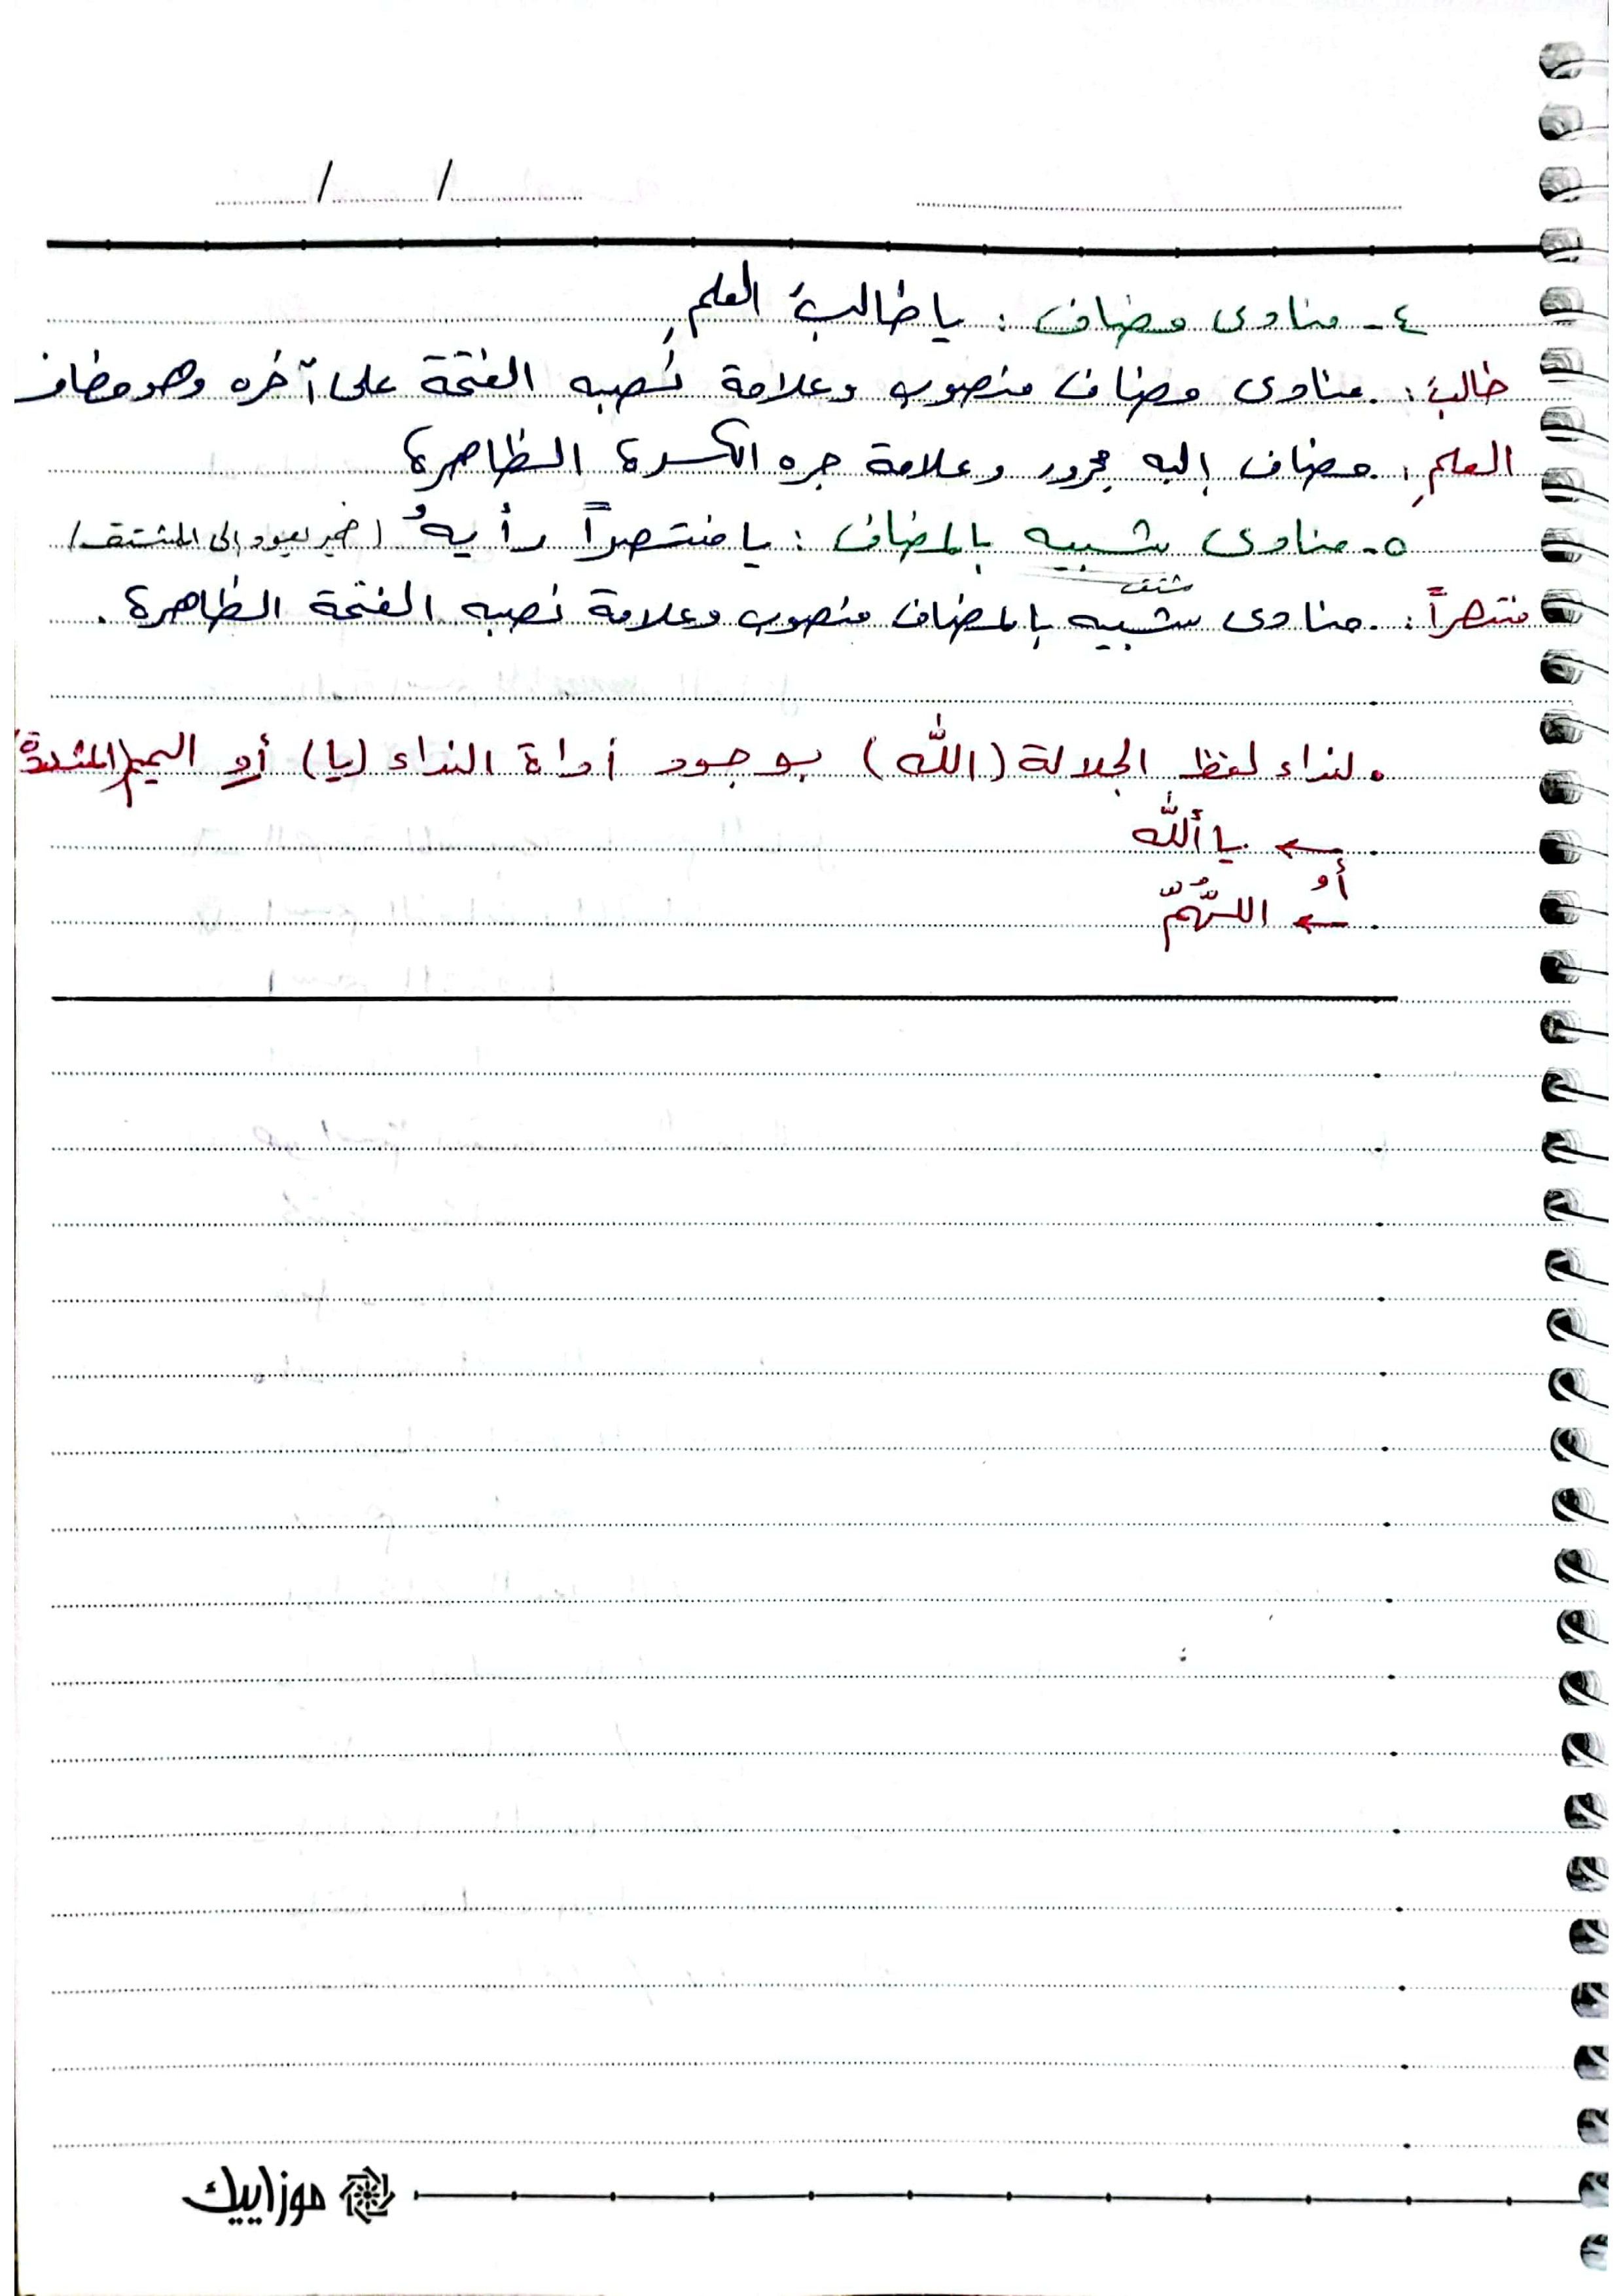 / /
٤- منادى مضاف : يا طالبَ العلمِ
طالبَ : منادى مضاف منصوب وعلامة نصبه الفتحة على آخره وهو مضاف
العلمِ : مضاف إليه مجرور وعلامة جره الكسرة الظاهرة
٥- منادى شبيه بالمضاف : يا منتصراً رأيهُ (ضمير يعود إلى المشتق)
مشتق
منتصراً : منادى شبيه بالمضاف منصوب وعلامة نصبه الفتحة الظاهرة .
• لنداء لفظ الجلالة (الله) بوجود أداة النداء (يا) أو الميم (المشددة)
← يا ألله
أو
← اللهُمّ
موزاييك